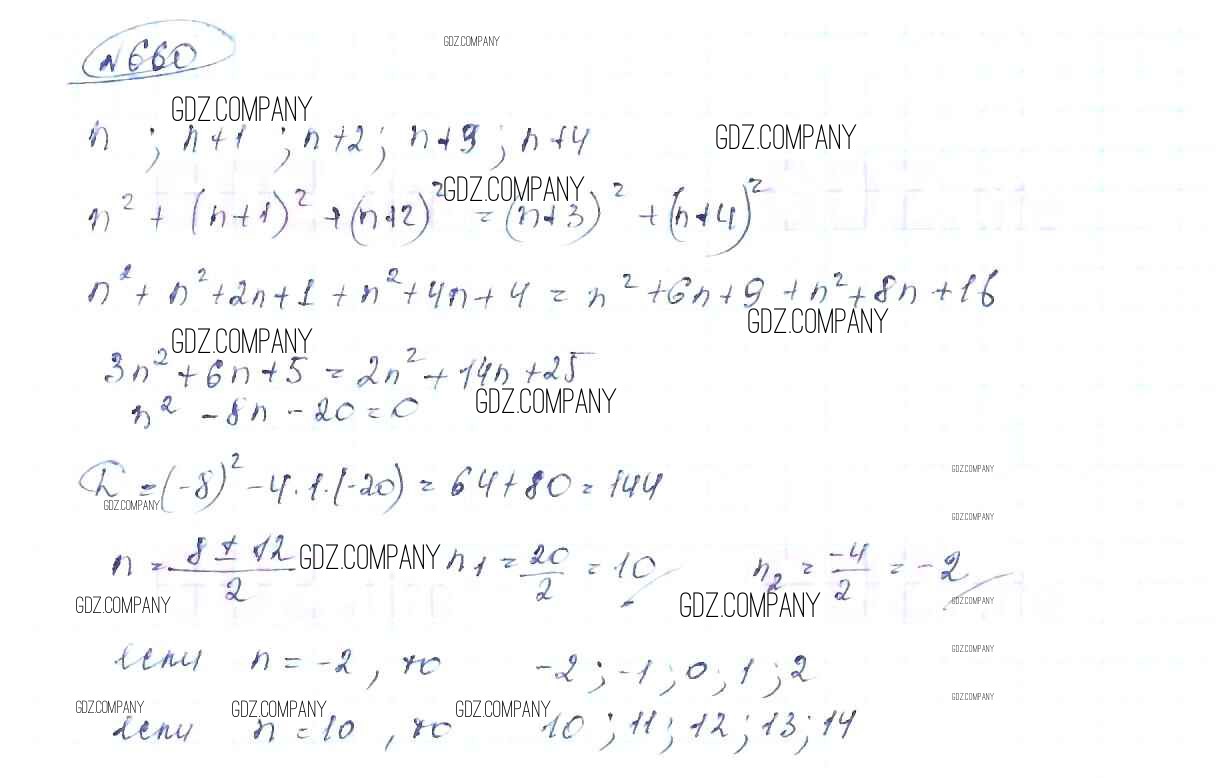 №660
GDZ.COMPANY
GDZ.COMPANY
n ; n+1 ; n+2 ; n+3 ; n+4
GDZ.COMPANY
GDZ.COMPANY
n² + (n+1)² + (n+2)² = (n+3)² + (n+4)²
n² + n² + 2n + 1 + n² + 4n + 4 = n² + 6n + 9 + n² + 8n + 16
GDZ.COMPANY
GDZ.COMPANY
3n² + 6n + 5 = 2n² + 14n + 25
n² - 8n - 20 = 0
GDZ.COMPANY
GDZ.COMPANY
D = (-8)² - 4·1·(-20) = 64 + 80 = 144
GDZ.COMPANY
GDZ.COMPANY
n = (8 ± 12)/2 GDZ.COMPANY n₁ = 20/2 = 10 n₂ = -4/2 = -2
GDZ.COMPANY GDZ.COMPANY GDZ.COMPANY
GDZ.COMPANY
если n = -2, то -2 ; -1 ; 0 ; 1 ; 2
GDZ.COMPANY GDZ.COMPANY GDZ.COMPANY GDZ.COMPANY
если n = 10, то 10 ; 11 ; 12 ; 13 ; 14